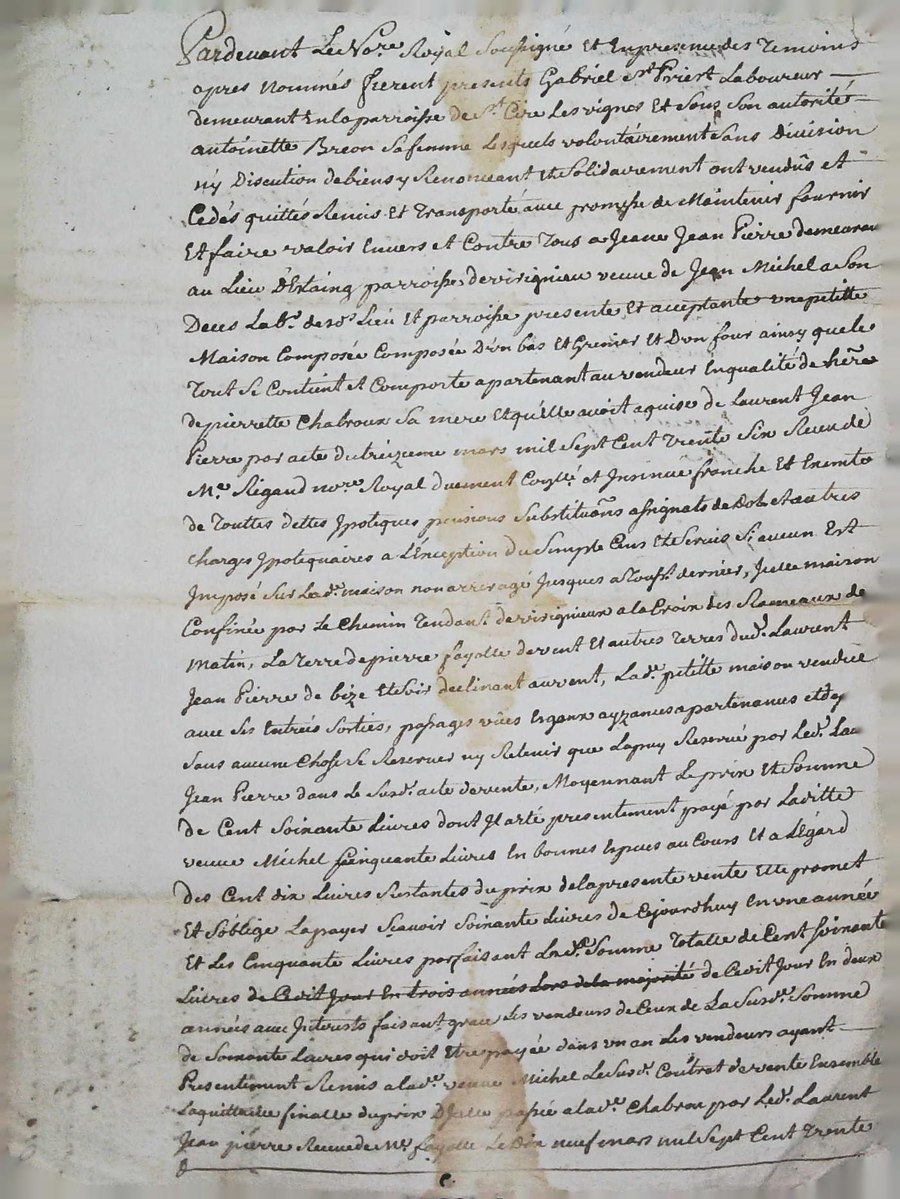 Pardevant Le No.re Royal Soussigné Et En presence des Temoins
apres nommés furent presents Gabriel St Priest Laboureur
demeurant En la parroisse de St Cire Les vignes Et Sous Son autorité
antoinette Breon Sa femme Lesquels volontairement Sans Division
n'y Discution de biens y Renonceant Et Solidairement ont vendûs et
Cedés quittés Remis Et Transporté avec promesse de Maintenir fournir
Et faire valoir Envers et Contre Tous a Jeane Jean Pierre demeuran
au Lieu D'Estaing parroisse de virignieu veuve de Jean Michel a Son
Deces Lab.r de sd.t Lieu Et parroisse presente Et acceptante une petitte
Maison Composée Composée D'un bas Et Grenier Et D'un four ainsy que le
Tout Se Contient et Comporte apartenant au vendeur En qualité de
de pierrette Chabroux Sa mere Et qu'elle avoit aquise de Laurent Jean
Pierre par acte du treizieme mars mil Sept Cent Trente Six Receu de
M.e Rigaud no.re Royal duement et Insinué franche Et Exempte
de Touttes dettes Ipoteques pensions Substitutions assignats de Dot et autres
charges Ipotequaires a L'Exception du Simple Cens Et Servis Si aucun Est
Imposé Sur La d.e maison non arreragé Jusques a Touss.t dernier, Icelle maison
Confinée par Le Chemin Tendan.t de virignieux a la Croix des Rameaux de
matin, La Terre de pierre fayolle de vent Et autres Terres dud.t Laurent
Jean Pierre de bize Et Soir declinant au vent, La d.e petitte maison vendüe
avec Ses Entrées Sorties, passages vûes Esgoux ayzances apartenances et
Sans aucune Chose Se Reserver n'y Retenir que Reservé par Led.t Lau
Jean Pierre dans Le Susd.t acte de vente, Moyennant Le prix Et Somme
de Cent Soixante Livres dont Il a été presentement payé par Laditte
veuve Michel Cinquante Livres En bonnes Especes au Cours Et a L'Egard
des Cent dix Livres Restantes du prix de la presente vente Elle promet
Et S'oblige La payer Scavoir Soixante Livres de Cejourdhuy En une année
Et Les Cinquante Livres parfaisant La d.e Somme Totalle de Cent Soixante
Livres de Cedit Jour En trois années Lors de la majorité de Cedit Jour En deux
années avec Interests faisant grace Les vendeurs de Ceux de La Susd.e Somme
de Soixante Livres qui doit Etre payée dans un an Les vendeurs ayant
Presentement Remis a la d.e veuve Michel Le Susd.t Contrat de vente Ensemble
La quittance finalle du prix D'Icelle passée a la d.e Chabrou par Led.t Laurent
Jean pierre Receue de M.e fayolle Le Dix neuf mars mil Sept Cent Trente